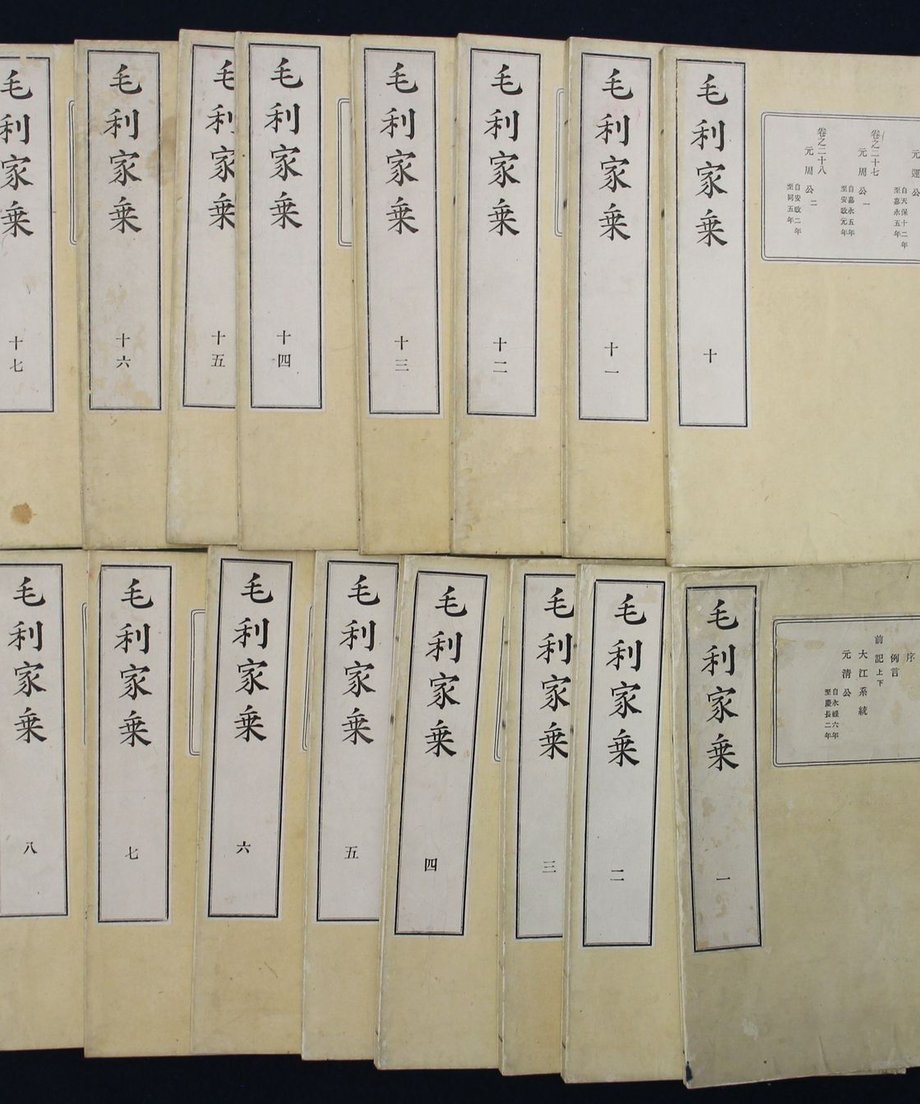 元運公
自天保十二年
至嘉永五年
卷之二十七
元周公一
自嘉永五年
至安政元年
卷之二十八
元周公二
自安政二年
至同五年
毛利家乗 十
毛利家乗 十一
毛利家乗 十二
毛利家乗 十三
毛利家乗 十四
毛利家乗 十五
毛利家乗 十六
毛利家乗 十七
序
例言
前記上下
大江系統
元清公
自永祿六年
至慶長二年
毛利家乗 一
毛利家乗 二
毛利家乗 三
毛利家乗 四
毛利家乗 五
毛利家乗 六
毛利家乗 七
毛利家乗 八